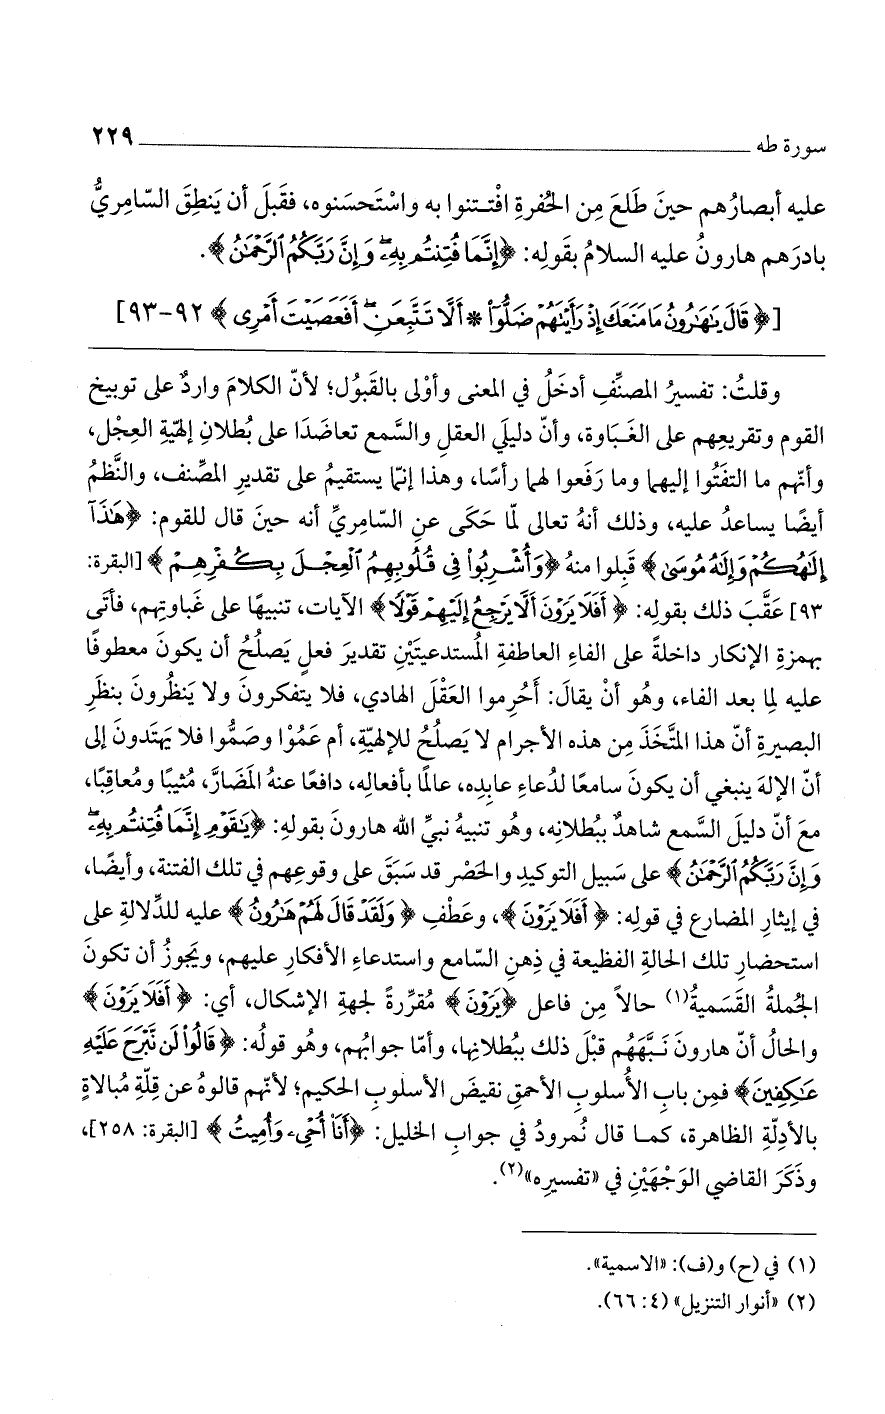 سورة طه ٢٢٩
عليه أبصارُهم حينَ طَلَعَ مِن الحُفرةِ افْتـتنوا به واسْتَحسَنوه، فقَبلَ أن يَنطِقَ السّامِريُّ
بادرَهم هارونُ عليه السلامُ بقَولِه: ﴿إِنَّمَا فُتِنتُم بِهِۦ وَإِنَّ رَبَّكُمُ ٱلرَّحْمَٰنُ﴾.
[﴿قَالَ يَٰهَٰرُونُ مَا مَنَعَكَ إِذْ رَأَيْتَهُمْ ضَلُّوٓا۟ * أَلَّا تَتَّبِعَنِ أَفَعَصَيْتَ أَمْرِى﴾ ٩٢-٩٣]
وقلتُ: تفسيرُ المصنِّفِ أدخَلُ في المعنى وأوْلى بالقَبُول؛ لأنّ الكلامَ واردٌ على توبيخ
القوم وتقريعِهم على الغَباوة، وأنّ دليلَي العقلِ والسَّمع تعاضَدَا على بُطلانِ إلهيّةِ العِجْل،
وأنّهم ما التفَتُوا إليهما وما رَفَعوا لهما رأسًا، وهذا إنّما يستقيمُ على تقديرِ المصِّنف، والنَّظمُ
أيضًا يساعدُ عليه، وذلك أنهُ تعالى لمّا حَكَى عنِ السّامِريِّ أنه حينَ قال للقوم: ﴿هَٰذَآ
إِلَٰهُكُمْ وَإِلَٰهُ مُوسَىٰ﴾ قَبِلوا منهُ ﴿وَأُشْرِبُوا۟ فِى قُلُوبِهِمُ ٱلْعِجْلَ بِكُفْرِهِمْ﴾ [البقرة:
٩٣] عَقَّبَ ذلك بقولِه: ﴿أَفَلَا يَرَوْنَ أَلَّا يَرْجِعُ إِلَيْهِمْ قَوْلًا﴾ الآيات، تنبيهًا على غَباوتِهم، فأتَى
بهمزةِ الإنكار داخلةً على الفاءِ العاطفةِ المُستدعيتَيْنِ تقديرَ فعلٍ يَصلُحُ أن يكونَ معطوفًا
عليه لِما بعد الفاء، وهُو أنْ يقالَ: أَحُرِموا العَقْلَ الهادي، فلا يتفكرونَ ولا يَنظُرونَ بنظَرِ
البصيرةِ أنّ هذا المتَّخَذَ مِن هذه الأجرام لا يَصلُحُ للإلهيّة، أم عَمُوْا وصَمُّوا فلا يَهتَدونَ إلى
أنّ الإلهَ ينبغي أن يكونَ سامعًا لدُعاءِ عابِدِه، عالمًا بأفعالِه، دافعًا عنهُ المَضَارَّ، مُثيبًا ومُعاقِبًا،
معَ أنّ دليلَ السَّمع شاهدٌ ببُطلانِه، وهُو تنبيهُ نبيِّ الله هارونَ بقولِه: ﴿يَٰقَوْمِ إِنَّمَا فُتِنتُم بِهِۦ
وَإِنَّ رَبَّكُمُ ٱلرَّحْمَٰنُ﴾ على سَبيل التوكيدِ والحَصْر قد سَبَقَ على وقوعِهم في تلك الفتنة، وأيضًا،
في إيثارِ المضارع في قولِه: ﴿أَفَلَا يَرَوْنَ﴾، وعَطْفِ ﴿وَلَقَدْ قَالَ لَهُمْ هَٰرُونُ﴾ عليه للدِّلالةِ على
استحضارِ تلك الحالةِ الفظيعة في ذِهنِ السّامع واستدعاءِ الأفكارِ عليهم، ويَجوزُ أن تكونَ
الجُملةُ القَسَميةُ(١) حالاً مِن فاعل ﴿يَرَوْنَ﴾ مُقرِّرةً لجهةِ الإشكال، أي: ﴿أَفَلَا يَرَوْنَ﴾
والحالُ أنّ هارونَ نَبَّهَهُم قبْلَ ذلك ببُطلانِها، وأمّا جوابُهم، وهُو قولُه: ﴿قَالُوا۟ لَن نَّبْرَحَ عَلَيْهِ
عَٰكِفِينَ﴾ فمِن بابِ الأُسلوبِ الأحمقِ نقيضَ الأسلوبِ الحكيم؛ لأنّهم قالوهُ عن قلّةِ مُبالاةٍ
بالأدِلّةِ الظاهرة، كما قال نُمرودُ في جوابِ الخليل: ﴿أَنَا۠ أُحْىِۦ وَأُمِيتُ﴾ [البقرة: ٢٥٨]،
وذَكَرَ القاضي الوَجْهَيْنِ في «تفسيرِه»(٢).
(١) في (ح) و(ف): «الاسمية».
(٢) «أنوار التنزيل» (٤: ٦٦).